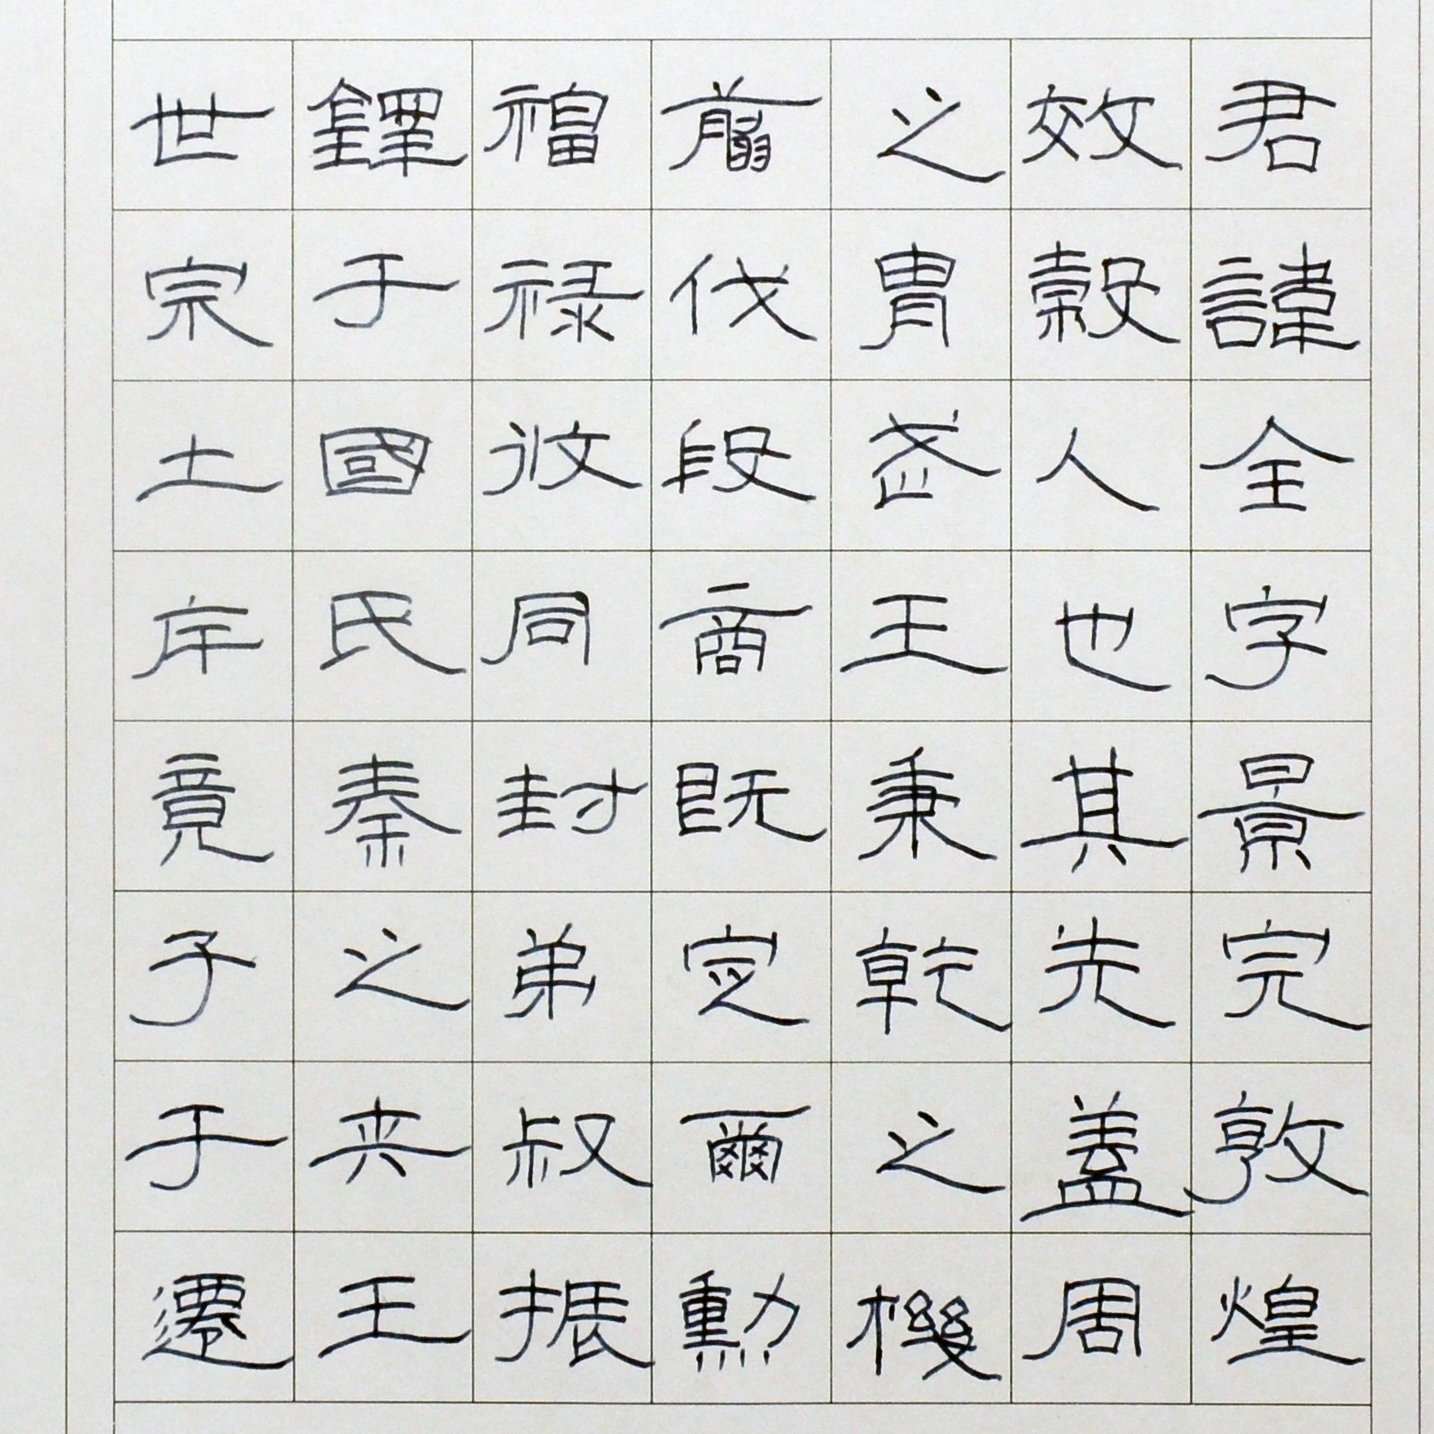 君諱全字景完敦煌
效穀人也其先蓋周
之胄武王秉乾之機
翦伐殷商既定爾勳
福祿攸同封弟叔振
鐸于國氏秦之夾王
世宗土斥竟子于遷